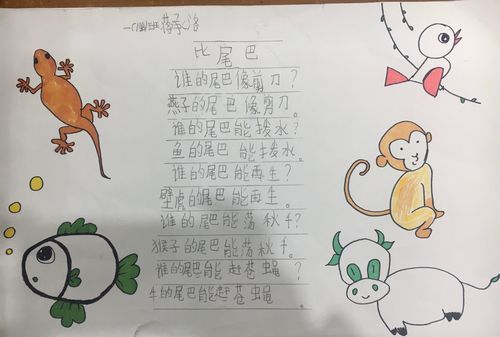 比尾巴
谁的尾巴像剪刀?
燕子的尾巴像剪刀。
谁的尾巴能拨水?
鱼的尾巴能拨水。
谁的尾巴能再生?
壁虎的尾巴能再生。
谁的尾巴能荡秋千?
猴子的尾巴能荡秋千。
谁的尾巴能赶苍蝇?
牛的尾巴能赶苍蝇。